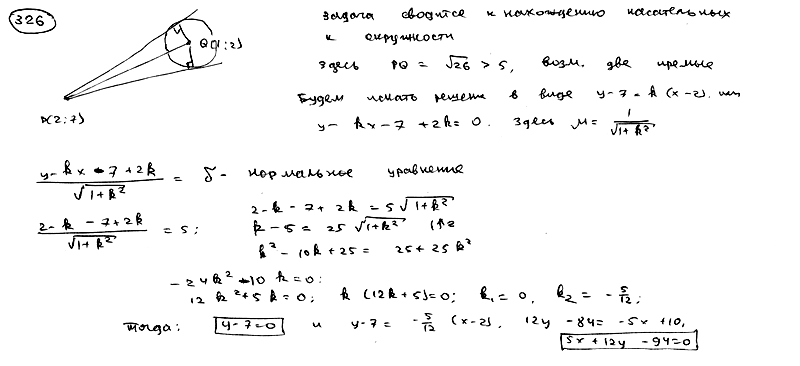 326
Задача сводится к нахождению касательных
к окружности
Q(1; 2)
Здесь PQ = √26 > 5, возм. две прямые
Будем искать решение в виде y-7 = k(x-2), или
P(2; 7)
y - kx - 7 + 2k = 0. Здесь M = 1/√(1+k²)
(y - kx - 7 + 2k)/√(1+k²) = δ - нормальное уравнение
(2 - k - 7 + 2k)/√(1+k²) = 5; 2 - k - 7 + 2k = 5√(1+k²)
k - 5 = 25√(1+k²) (↑2
k² - 10k + 25 = 25 + 25k²
-24k² - 10k = 0;
12k² + 5k = 0; k(12k+5) = 0; k₁ = 0, k₂ = -5/12;
Тогда: y-7=0 и y-7 = -5/12 (x-2), 12y - 84 = -5x + 10,
5x + 12y - 94 = 0